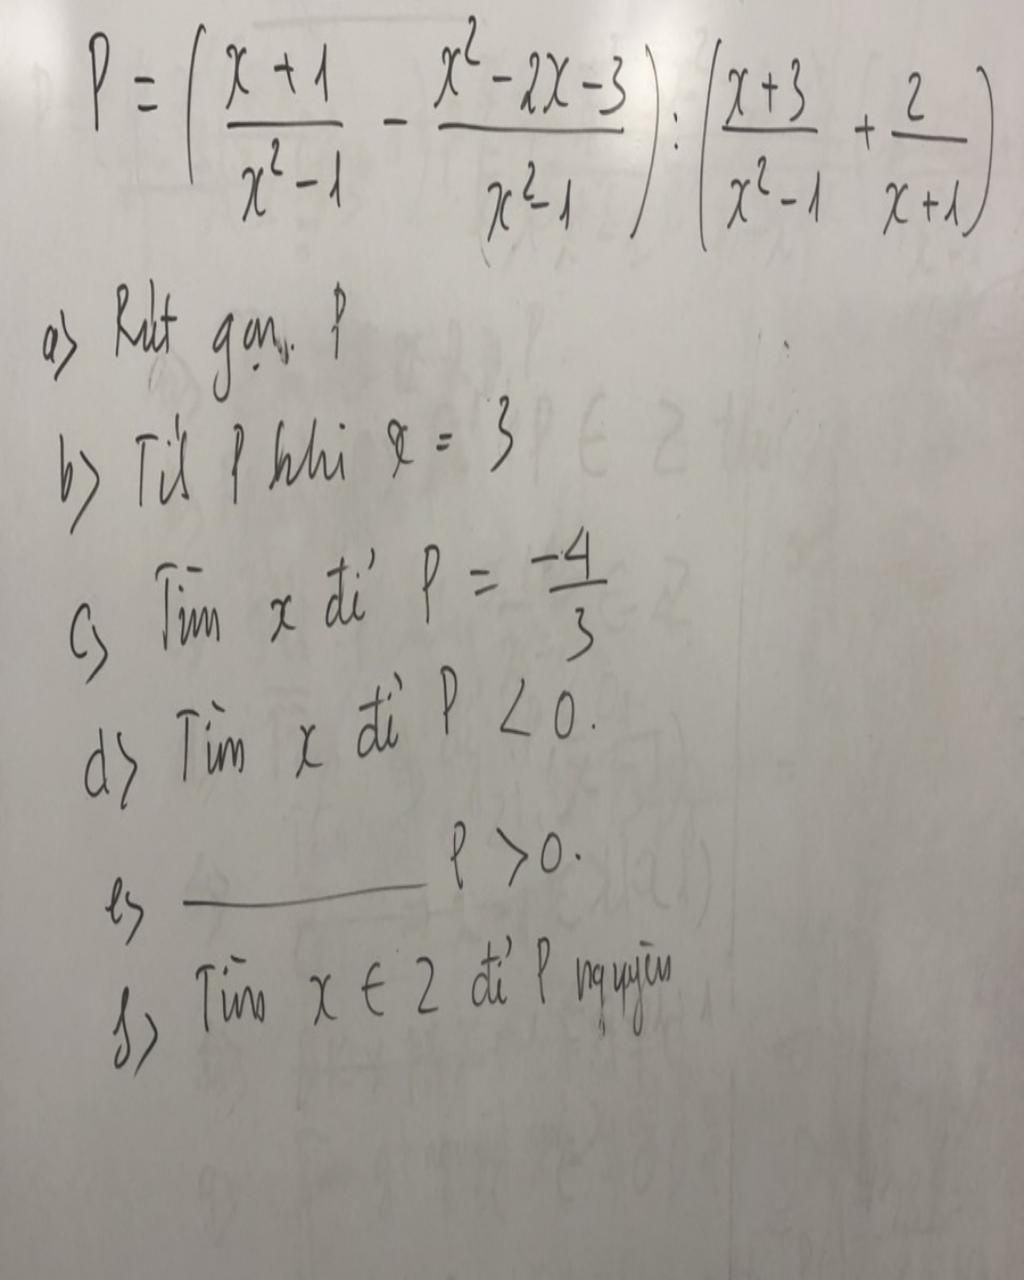 P = ( (x + 1)/(x² - 1) - (x² - 2x - 3)/(x² - 1) ) : ( (x + 3)/(x² - 1) + 2/(x + 1) )
a) Rút gọn P
b) Tính P khi x = 3
c) Tìm x để P = -4/3
d) Tìm x để P < 0.
e) ________ P > 0.
f) Tìm x ∈ Z để P nguyên